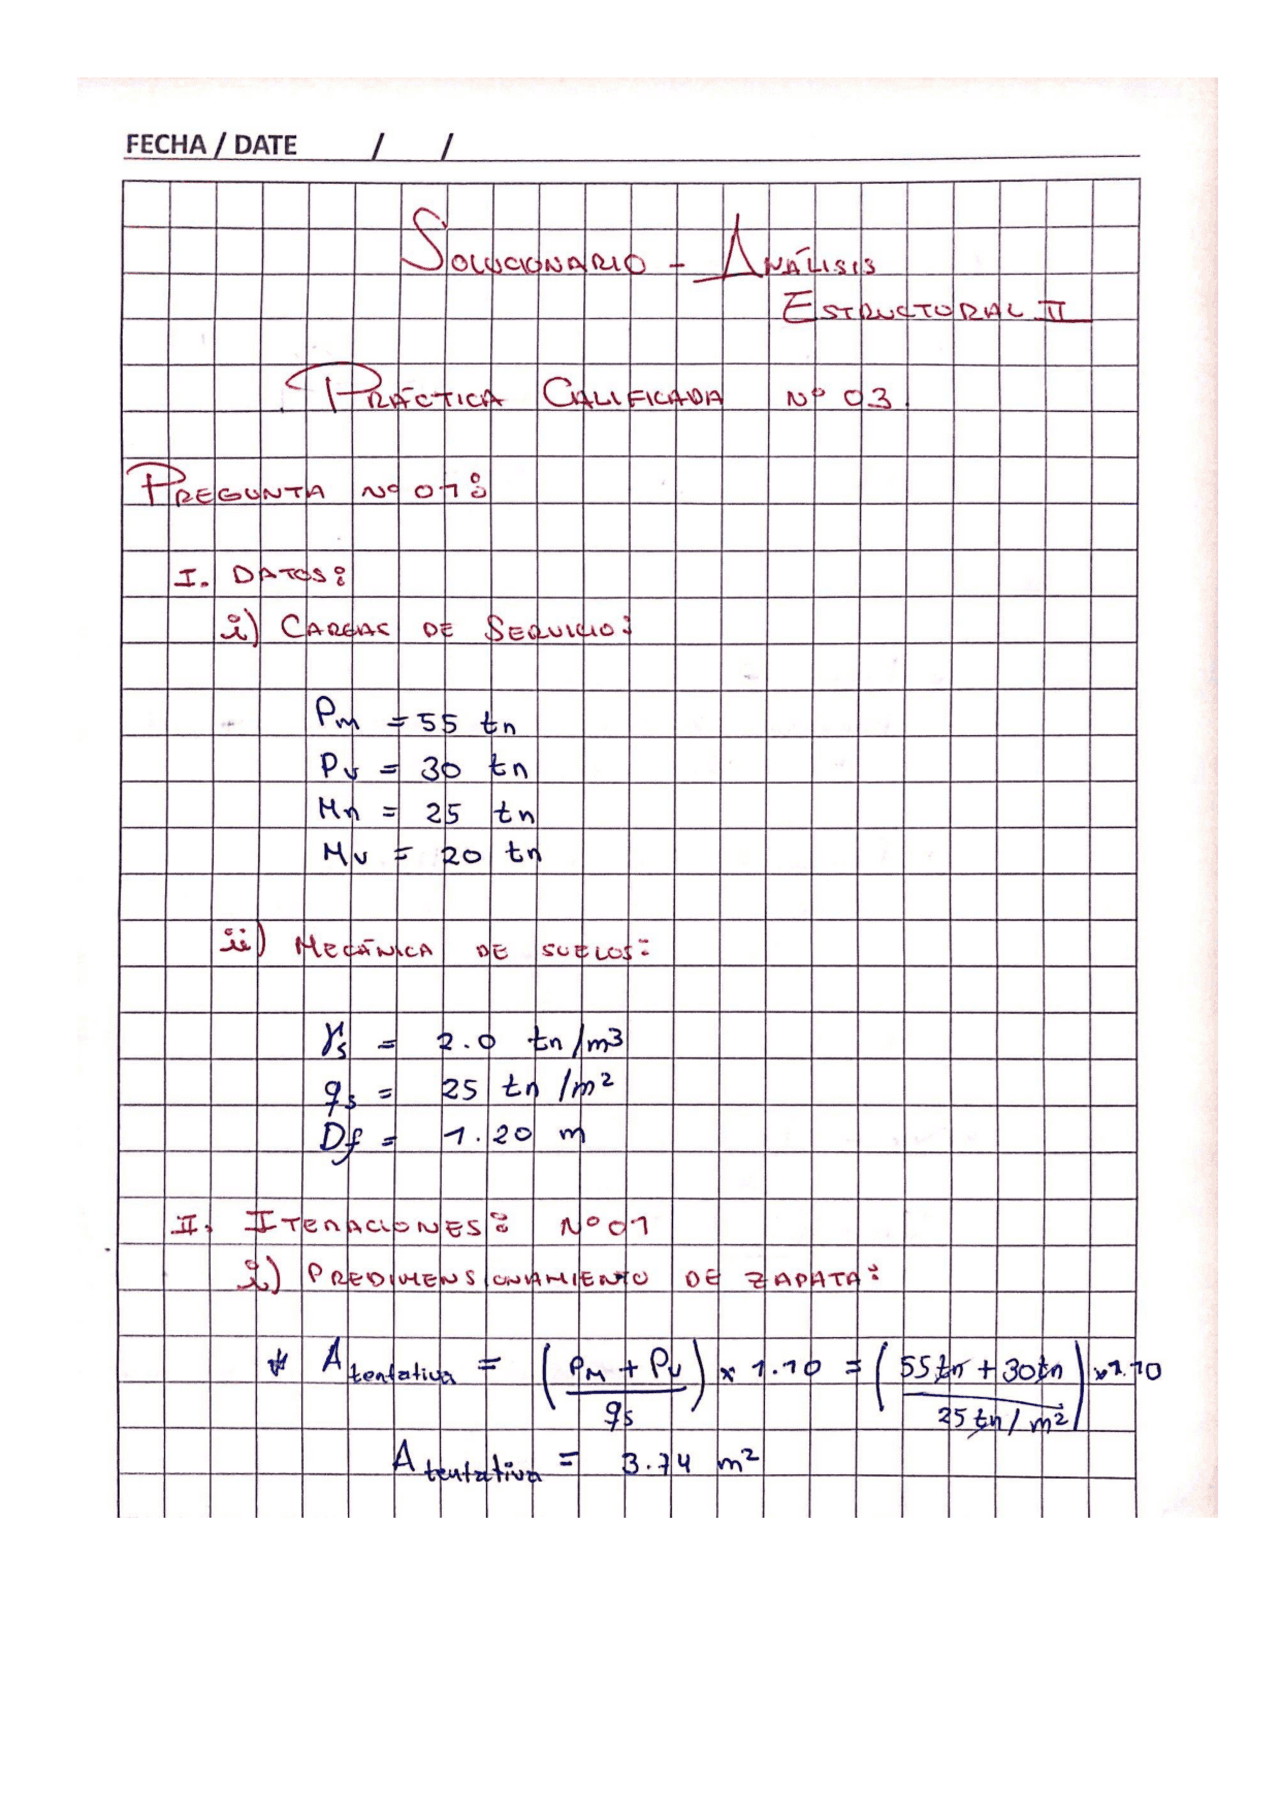 FECHA / DATE / /
SOLUCIONARIO - ANÁLISIS
ESTRUCTORAL II
PRÁCTICA CALIFICADA Nº 03
PREGUNTA Nº 01:
I. DATOS:
i) CARGAS DE SERVICIO:
Pm = 55 tn
Pv = 30 tn
Mn = 25 tn
Mv = 20 tn
ii) MECÁNICA DE SUELOS:
γs = 2.0 tn/m3
qs = 25 tn/m²
Df = 1.20 m
II. ITERACIONES: Nº 01
i) PREDIMENSIONAMIENTO DE ZAPATA:
* Atentativa = (PM + Pv / qs) x 1.10 = (55tn + 30tn / 25 tn/m²) x 1.10
Atentativa = 3.74 m²